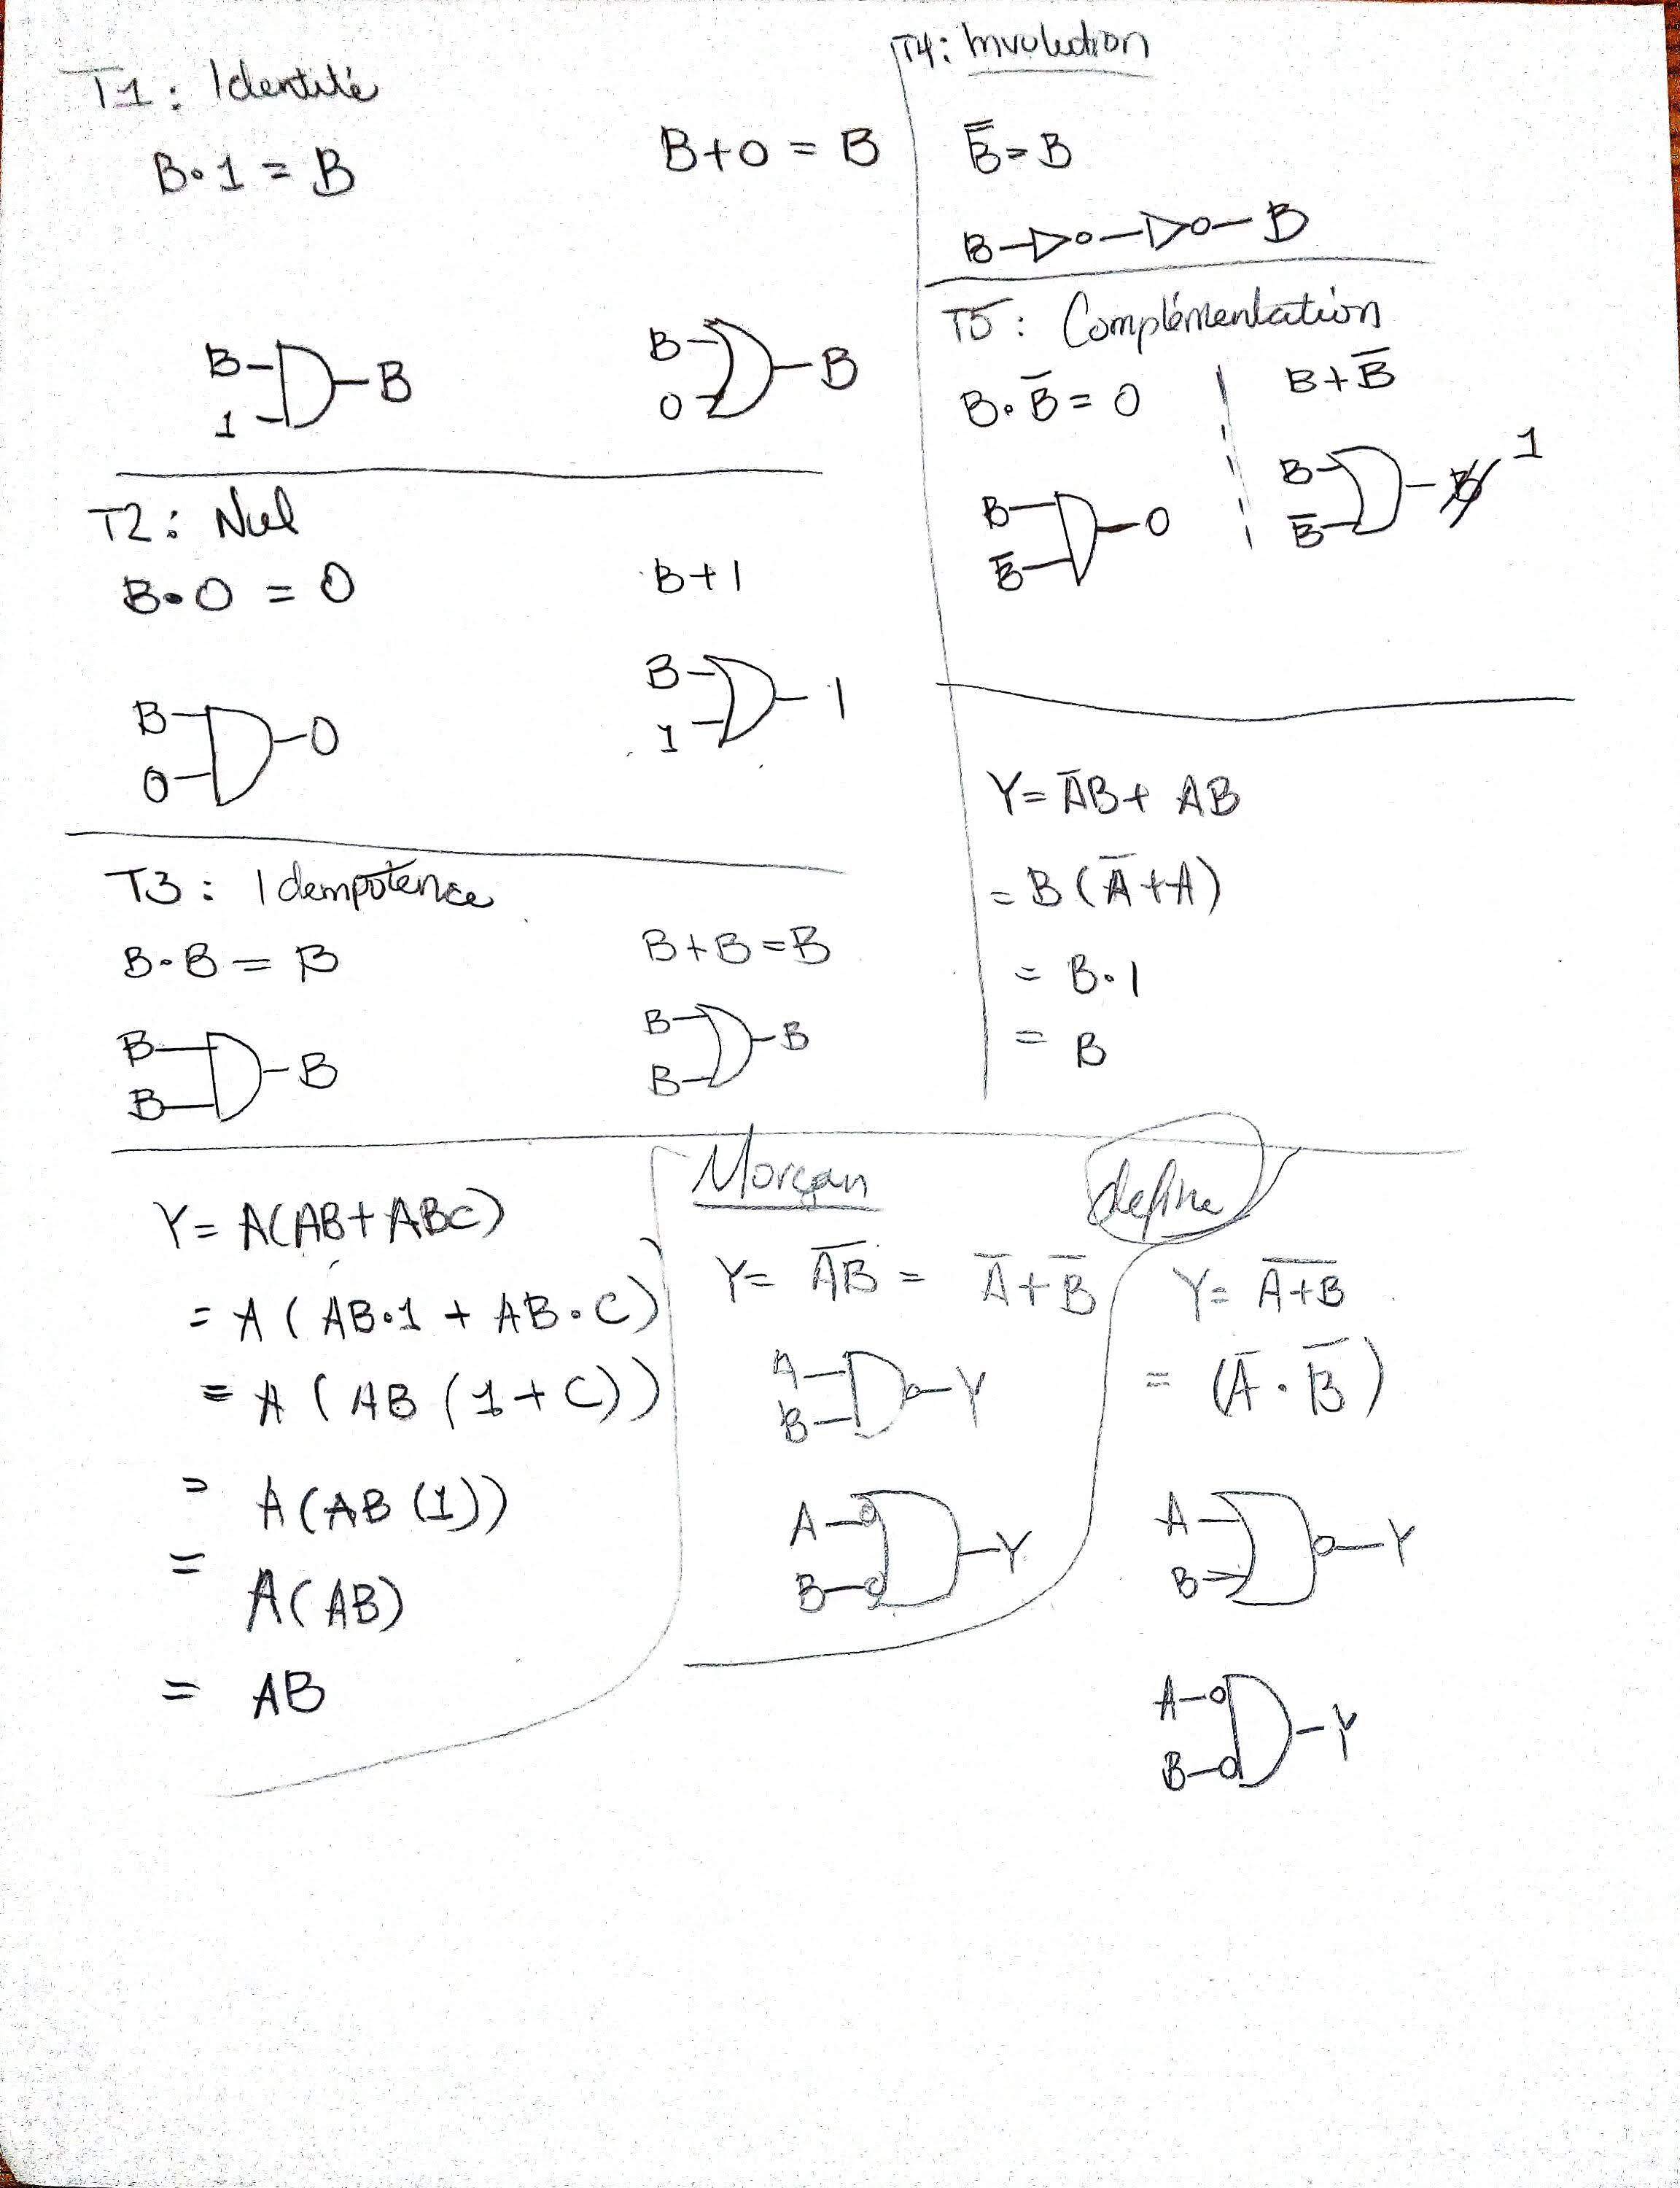 T1 : Identité
B•1 = B
B+0 = B
B
1
B
B
0
B
T2 : Nul
B•0 = 0
B+1
B
0
0
B
1
1
T3 : Idempotence
B•B = B
B+B=B
B
B
B
B
B
B
T4 : Involution
B̿ = B
B
B
T5 : Complémentation
B•B̅ = 0
B+B̅
B
B̅
0
B
B̅
1
Y= A̅B+ AB
= B(A̅+A)
= B•1
= B
Y= A(AB+ABC)
= A(AB•1 + AB•C)
= A(AB(1+C))
= A(AB(1))
= A(AB)
= AB
Morgan
Y= A̅B̅ = A̅+B̅
A
B
Y
A
B
Y
define
Y= A̅+̅B̅
= (A̅•B̅)
A
B
Y
A
B
Y